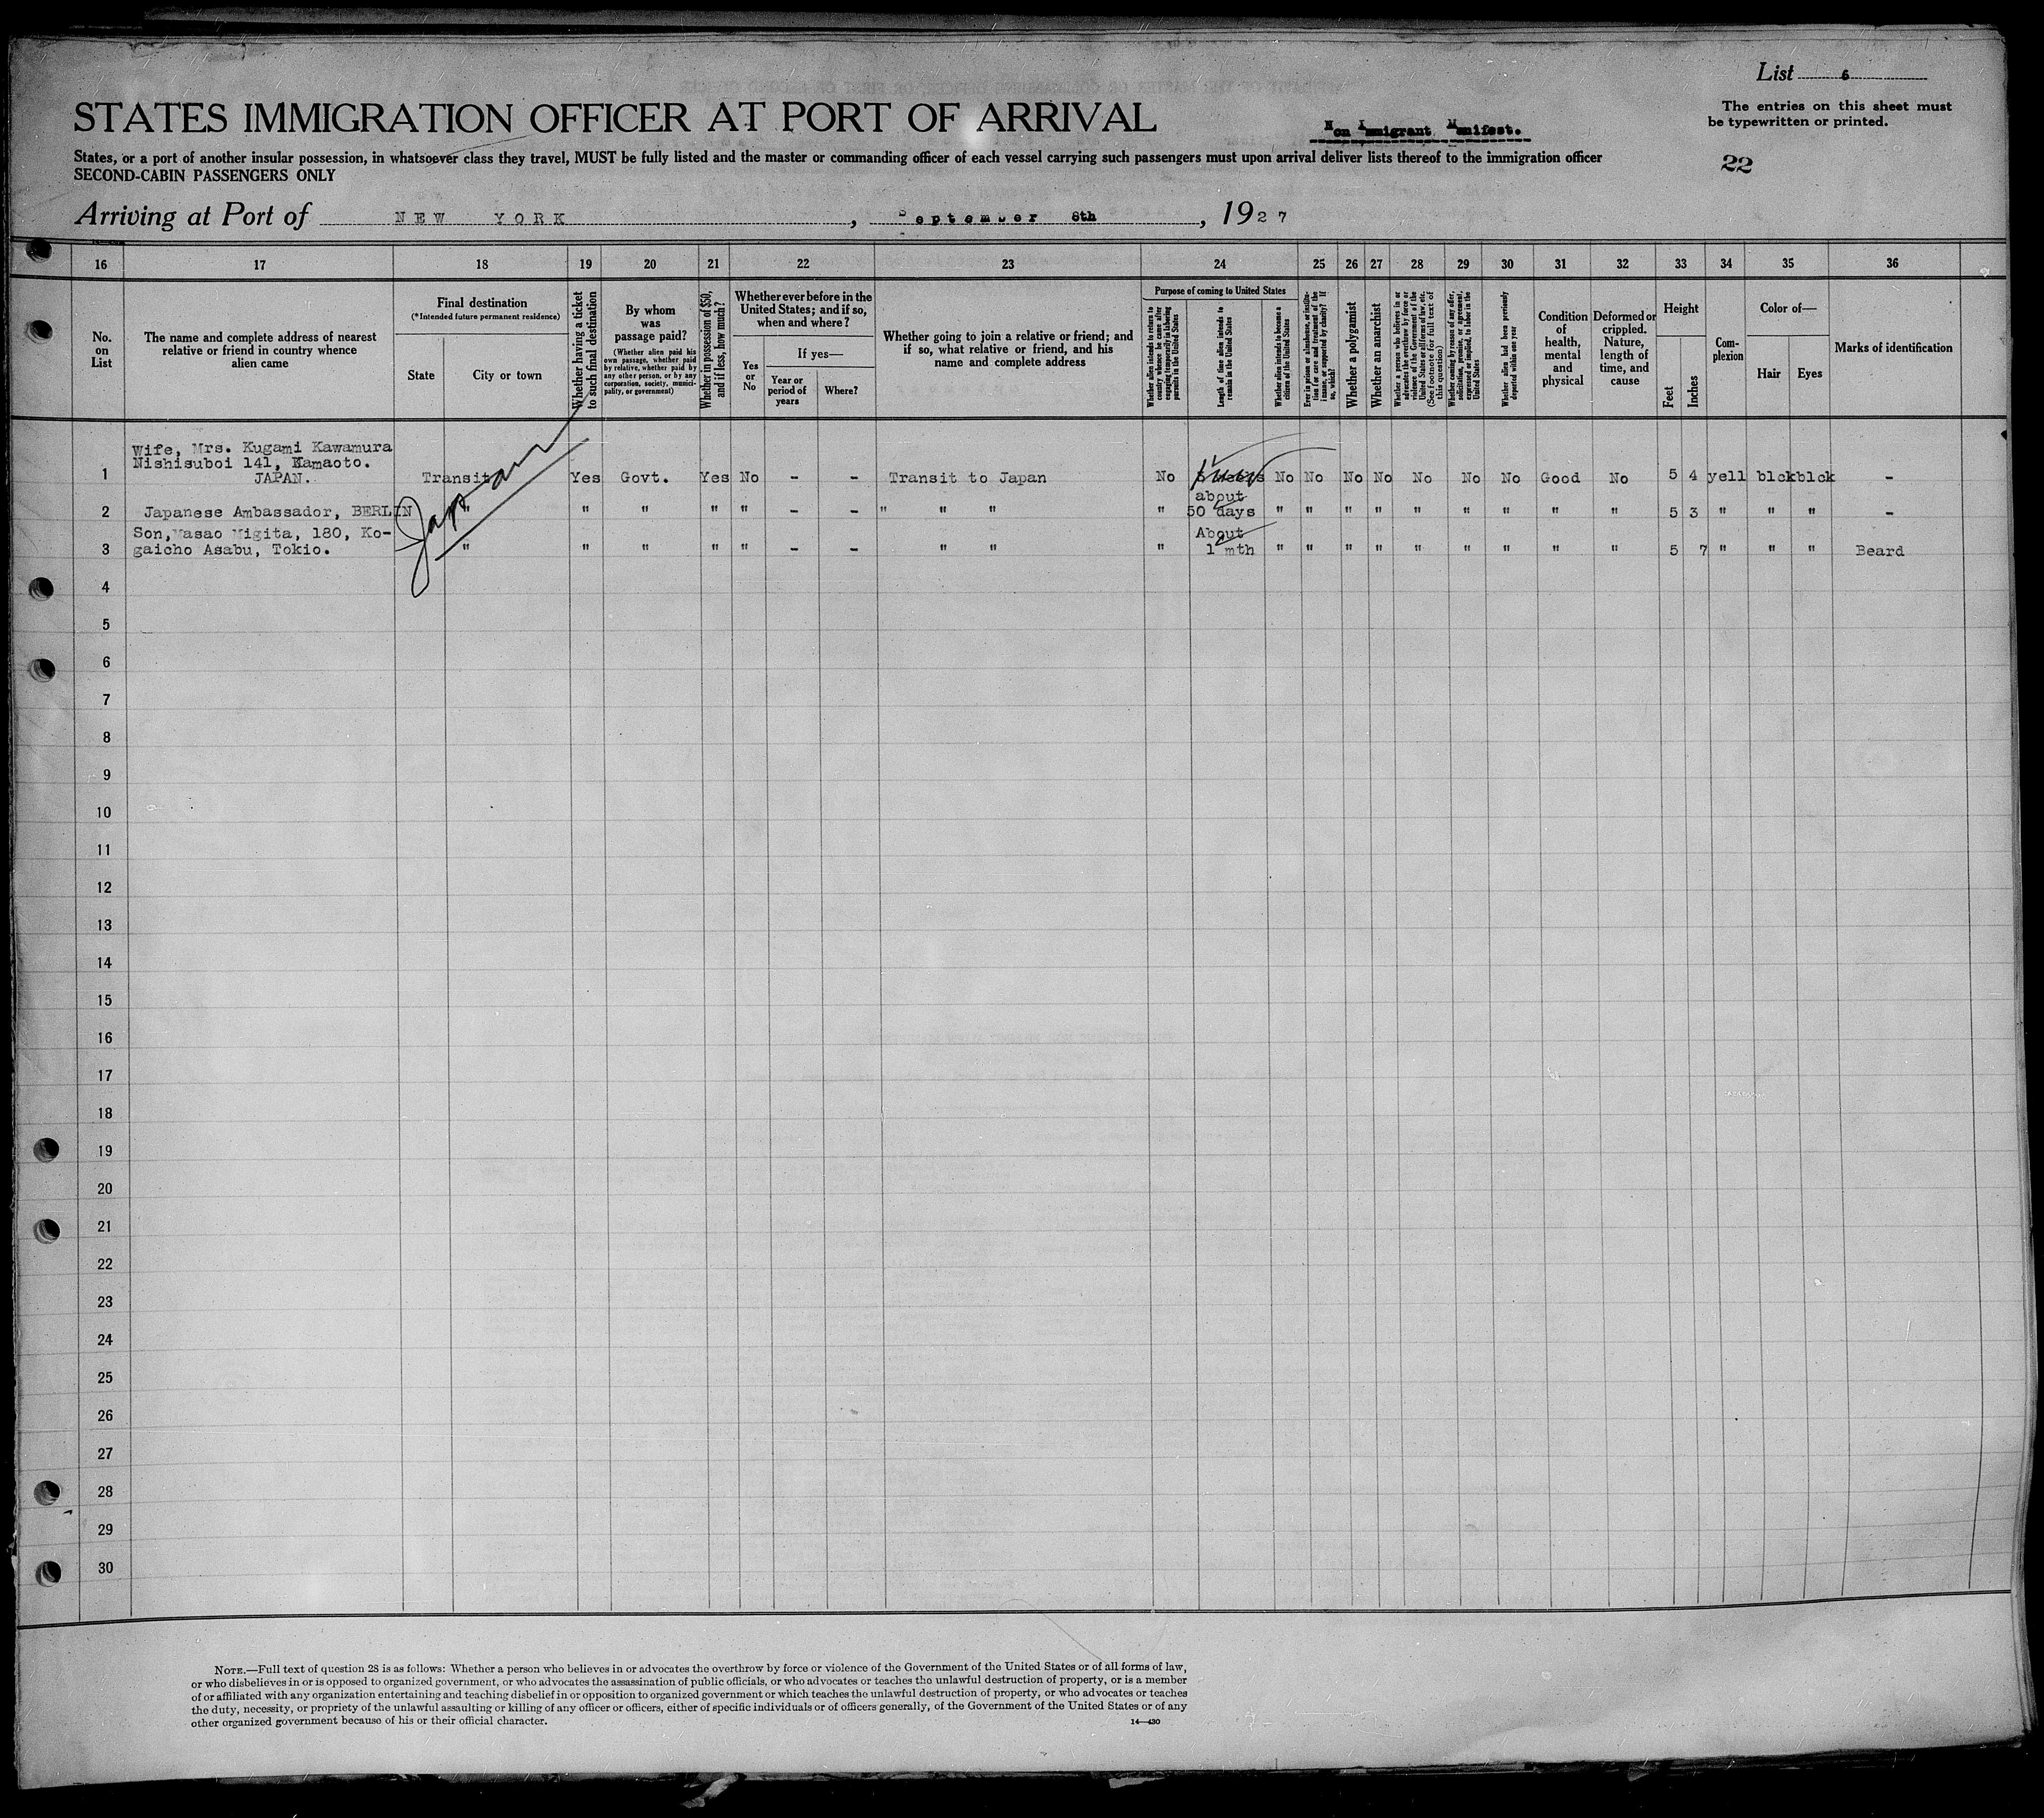 List 6
STATES IMMIGRATION OFFICER AT PORT OF ARRIVAL
Non Immigrant Manifest.
The entries on this sheet must
be typewritten or printed.
States, or a port of another insular possession, in whatsoever class they travel, MUST be fully listed and the master or commanding officer of each vessel carrying such passengers must upon arrival deliver lists thereof to the immigration officer
SECOND-CABIN PASSENGERS ONLY
22
Arriving at Port of NEW YORK, September 8th, 1927
16 17 18 19 20 21 22 23 24 25 26 27 28 29 30 31 32 33 34 35 36
No. on List
The name and complete address of nearest
relative or friend in country whence
alien came
Final destination
(*Intended future permanent residence)
State
City or town
Whether having a ticket
to such final destination
By whom
was
passage paid?
(Whether alien paid his
own passage, whether paid
by relative, whether paid by
any other person, or by any
corporation, society, munici-
pality, or government)
Whether in possession of $50,
and if less, how much?
Whether ever before in the
United States; and if so,
when and where?
Yes
or
No
If yes—
Year or
period of
years
Where?
Whether going to join a relative or friend; and
if so, what relative or friend, and his
name and complete address
Purpose of coming to United States
Whether alien intends to return to
country whence he came after
engaging temporarily in laboring
pursuits in the United States
Length of time alien intends to
remain in the United States
Whether alien intends to become a
citizen of the United States
Ever in prison or almshouse, or institu-
tion for care and treatment of the
insane, or supported by charity? If
so, which?
Whether a polygamist
Whether an anarchist
Whether a person who believes in or
advocates the overthrow by force or
violence of the Government of the
United States or all forms of law, etc.
(See footnote for full text of
this question)
Whether coming by reason of any offer,
solicitation, promise, or agreement,
expressed or implied, to labor in the
United States
Whether alien had been previously
deported within one year
Condition
of
health,
mental
and
physical
Deformed or
crippled.
Nature,
length of
time, and
cause
Height
Feet
Inches
Com-
plexion
Color of—
Hair
Eyes
Marks of identification
Wife, Mrs. Kugami Kawamura
Nishisuboi 141, Kamaoto.
1 JAPAN. Transit Yes Govt. Yes No - - Transit to Japan No No No No No No No No Good No 5 4 yell blck blck -
Japan
about
2 Japanese Ambassador, BERLIN " " " " " - - " " " " 50 days " " " " " " " " " 5 3 " " " -
Son, Masao Migita, 180, Ko- About
3 gaicho Asabu, Tokio. " " " " " - - " " " 1 mth " " " " " " " " " 5 7 " " " Beard
4
5
6
7
8
9
10
11
12
13
14
15
16
17
18
19
20
21
22
23
24
25
26
27
28
29
30
NOTE.—Full text of question 28 is as follows: Whether a person who believes in or advocates the overthrow by force or violence of the Government of the United States or of all forms of law,
or who disbelieves in or is opposed to organized government, or who advocates the assassination of public officials, or who advocates or teaches the unlawful destruction of property, or is a member
of or affiliated with any organization entertaining and teaching disbelief in or opposition to organized government or which teaches the unlawful destruction of property, or who advocates or teaches
the duty, necessity, or propriety of the unlawful assaulting or killing of any officer or officers, either of specific individuals or of officers generally, of the Government of the United States or of any
other organized government because of his or their official character.
14—430